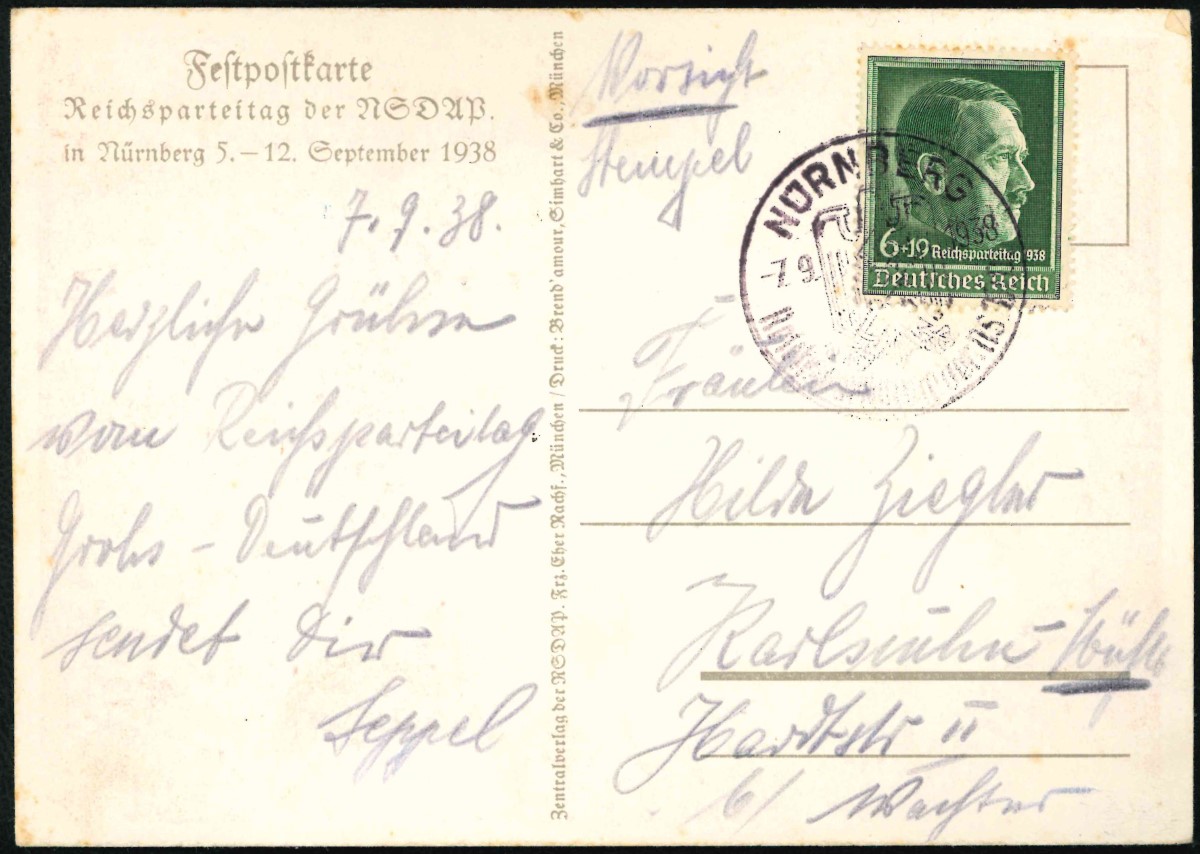 Festpostkarte
Reichsparteitag der NSDAP.
in Nürnberg 5.–12. September 1938
7.9.38.
Herzliche Grüße
vom Reichsparteitag
Groß-Deutschland
sendet Dir
Seppel
Zentralverlag der NSDAP. Frz. Eher Nachf., München / Druck: Brend'amour, Simhart & Co., München
Vorsicht
Stempel
6+19 Reichsparteitag 1938
Deutsches Reich
NÜRNBERG
-7.9. 1938
Fräulein
Hilde Ziegler
Karlsruhe-
Hardtstr 11
b/ Wachter